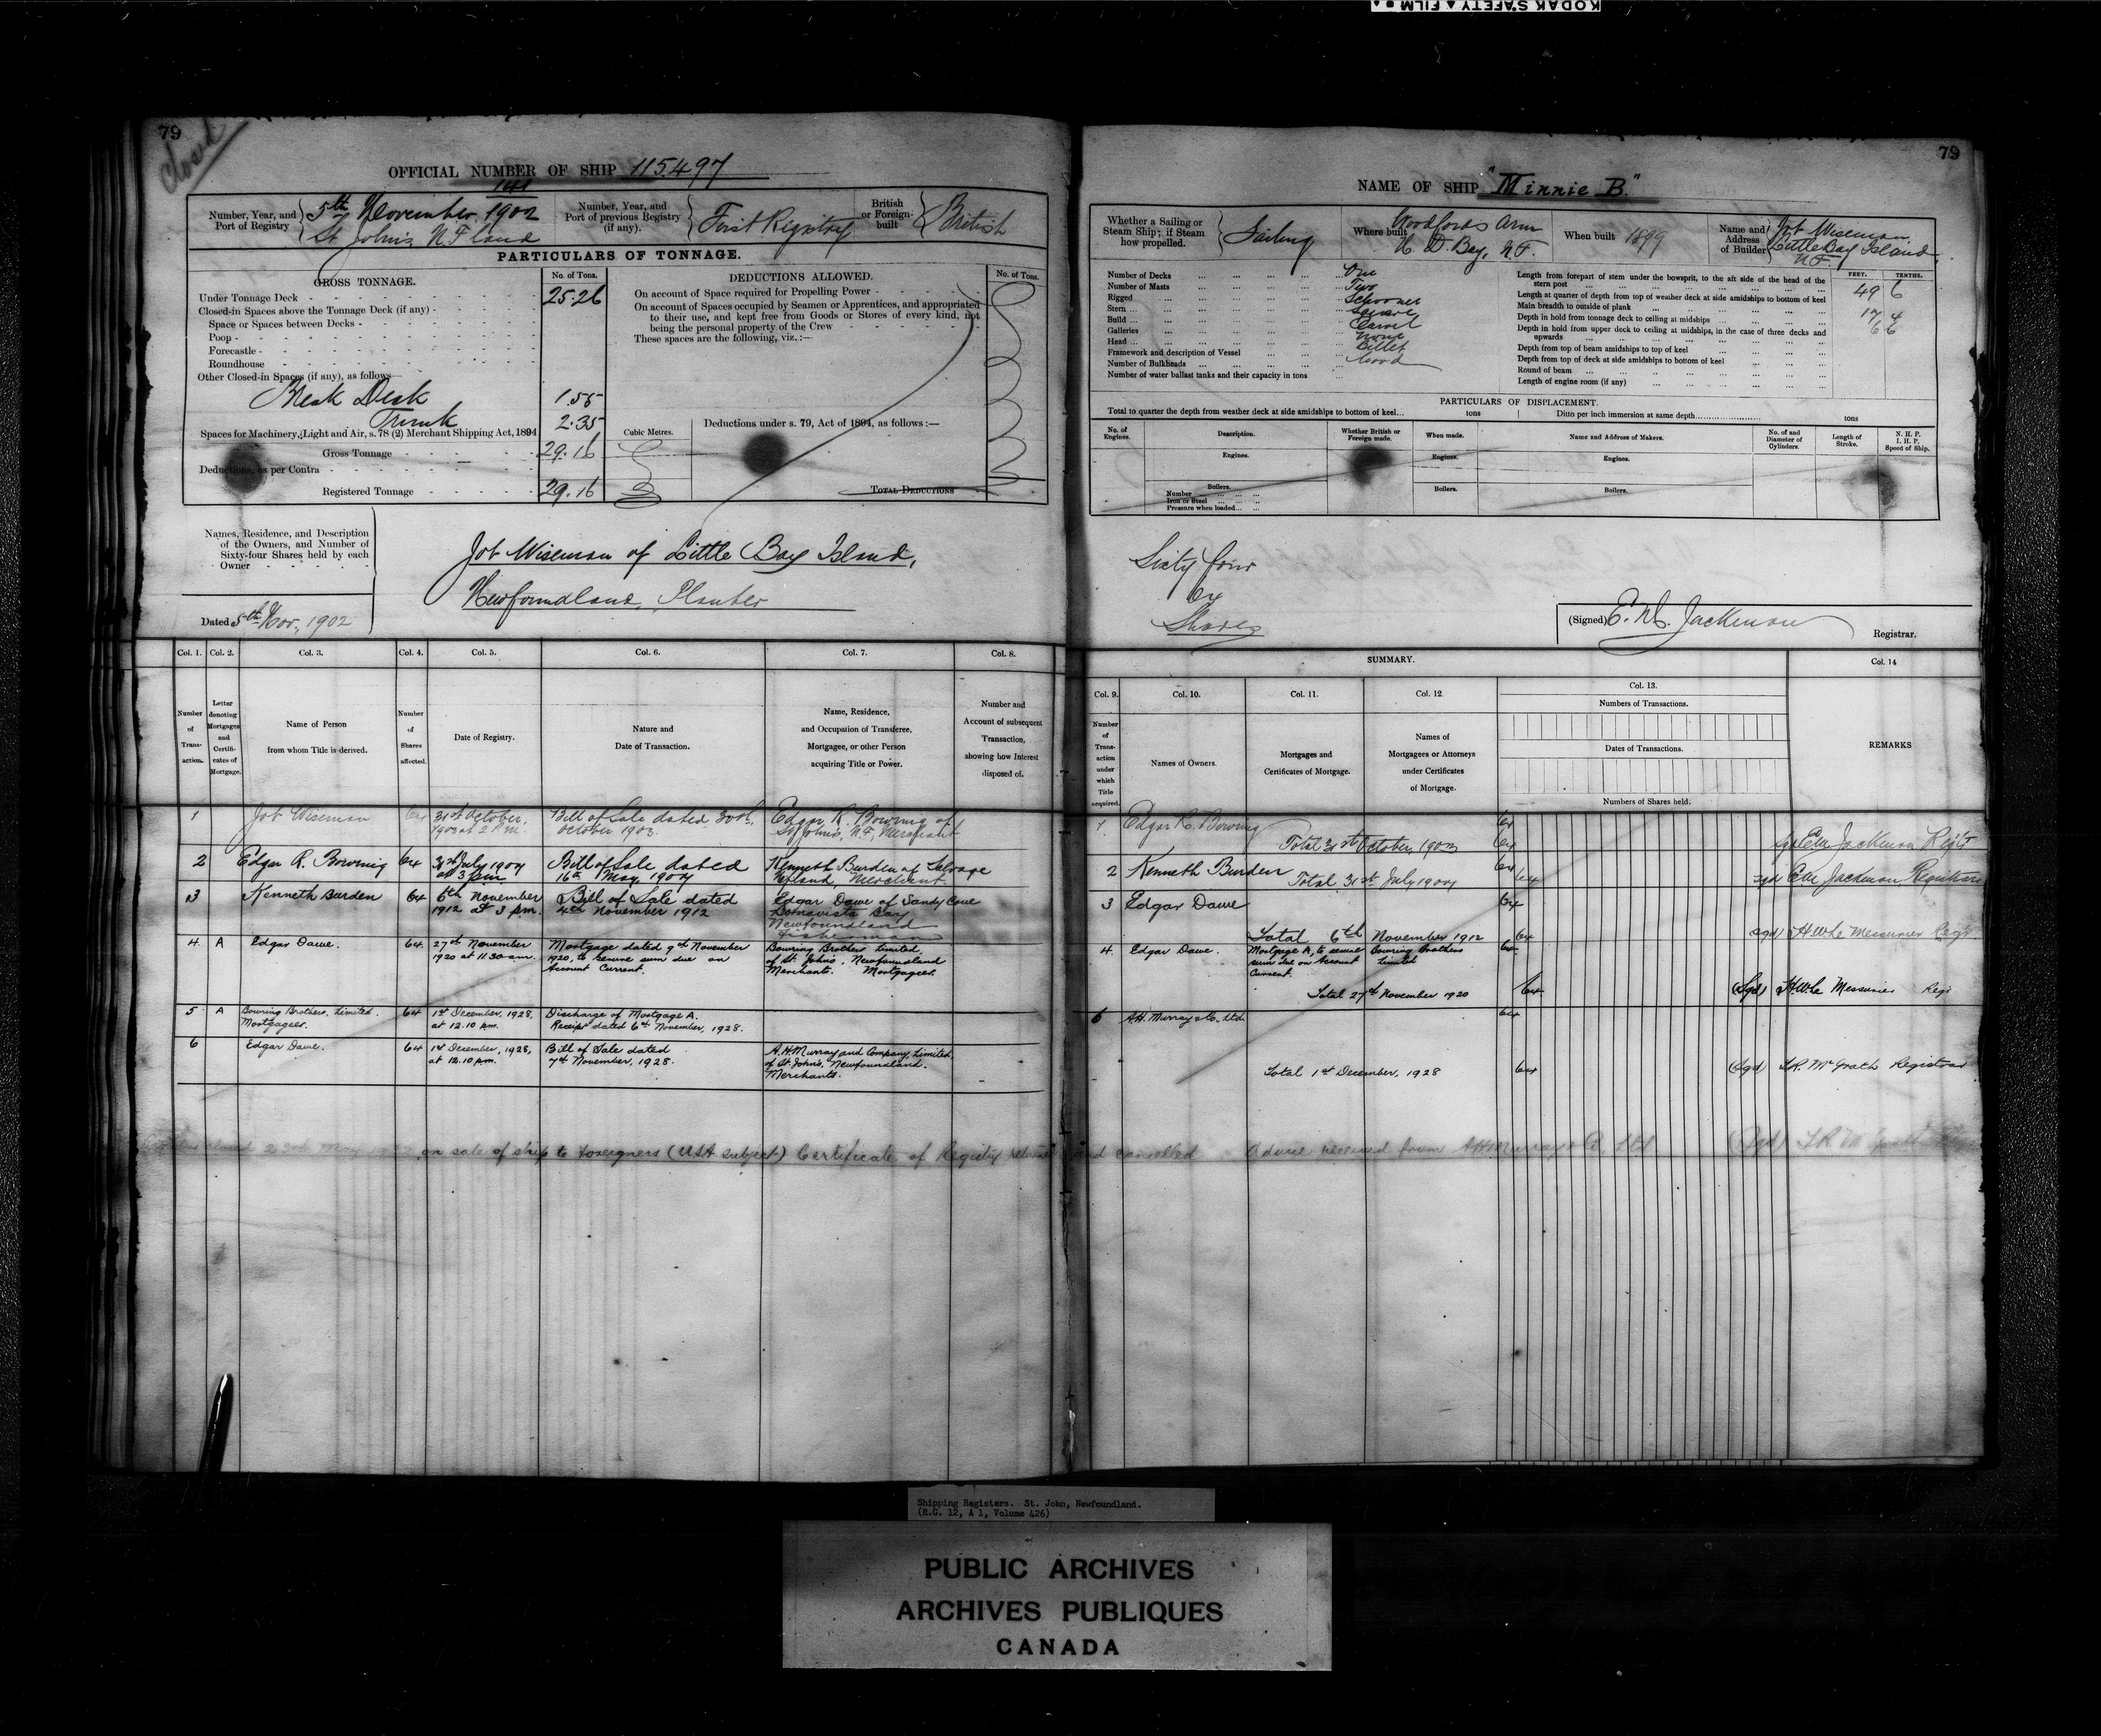 KODAK SAFETY FILM
79
Closed
OFFICIAL NUMBER OF SHIP 115.497
Number, Year, and Port of Registry
141
5th November 1902
St John's N.F.land
Number, Year, and Port of previous Registry (if any).
First Registry
British or Foreign-built
British
PARTICULARS OF TONNAGE.
GROSS TONNAGE.
No. of Tons.
Under Tonnage Deck 25.26
Closed-in Spaces above the Tonnage Deck (if any)
Space or Spaces between Decks
Poop
Forecastle
Roundhouse
Other Closed-in Spaces (if any), as follows
Break Deck 1.55
Trunk 2.35
Spaces for Machinery, Light and Air, s. 78 (2) Merchant Shipping Act, 1894
Gross Tonnage 29.16
Deductions, as per Contra
Registered Tonnage 29.16
DEDUCTIONS ALLOWED.
No. of Tons.
On account of Space required for Propelling Power
On account of Spaces occupied by Seamen or Apprentices, and appropriated
to their use, and kept free from Goods or Stores of every kind, not
being the personal property of the Crew
These spaces are the following, viz. :—
Cubic Metres.
Deductions under s. 79, Act of 1894, as follows :—
TOTAL DEDUCTIONS
Names, Residence, and Description
of the Owners, and Number of
Sixty-four Shares held by each
Owner
Job Wiseman of Little Bay Island,
Newfoundland, Planter
Dated 5th Nov. 1902
Col. 1. Col. 2. Col. 3. Col. 4. Col. 5. Col. 6. Col. 7. Col. 8.
Number of Transaction.
Letter denoting Mortgages and Certificates of Mortgage.
Name of Person from whom Title is derived.
Number of Shares affected.
Date of Registry.
Nature and Date of Transaction.
Name, Residence, and Occupation of Transferee, Mortgagee, or other Person acquiring Title or Power.
Number and Account of subsequent Transaction, showing how Interest disposed of.
1 Job Wiseman 64 31st October, 1903 at 2 P.M. Bill of Sale dated 30th October 1903. Edgar R. Bowring of St John's, N.F, Merchant
2 Edgar R. Bowring 64 31st July 1907 at 3 pm Bill of Sale dated 16th May 1907 Kenneth Burden of Salvage Nfland, Merchant.
3 Kenneth Burden 64 6th November 1912 at 3 pm. Bill of Sale dated 4th November 1912 Edgar Dawe of Sandy Cove Bonavista Bay Newfoundland Fisherman
4. A Edgar Dawe. 64. 27th November 1920 at 11.30 am. Mortgage dated 9th November 1920, to secure sum due on Account Current. Bowring Brothers Limited, of St. John's, Newfoundland Merchants. Mortgagees.
5 A Bowring Brothers, Limited. Mortgagees. 64 1st December, 1928, at 12.10 pm. Discharge of Mortgage A. Receipt dated 6th November, 1928.
6 Edgar Dawe. 64 1st December, 1928, at 12.10 pm. Bill of Sale dated 7th November, 1928. A.H.Murray and Company, Limited, of St. John's, Newfoundland. Merchants.
closed 23rd May on sale of ship to foreigners (USA subject) Certificate of Registry and cancelled Advice received from A.H.Murray & Co. Ltd (Sgd)
79
NAME OF SHIP "Minnie B."
Whether a Sailing or Steam Ship; if Steam how propelled.
Sailing
Where built
Woodfords Arm
N. D. Bay, N.F.
When built
1899
Name and Address of Builder
Job Wiseman
Little Bay Island
N.F.
Number of Decks One
Number of Masts Two
Rigged Schooner
Stern Square
Build Carvel
Galleries None
Head Billet
Framework and description of Vessel Wood
Number of Bulkheads
Number of water ballast tanks and their capacity in tons
FEET. TENTHS.
Length from forepart of stem under the bowsprit, to the aft side of the head of the stern post 49 6
Length at quarter of depth from top of weather deck at side amidships to bottom of keel
Main breadth to outside of plank 17 4
Depth in hold from tonnage deck to ceiling at midships 6 6
Depth in hold from upper deck to ceiling at midships, in the case of three decks and upwards
Depth from top of beam amidships to top of keel
Depth from top of deck at side amidships to bottom of keel
Round of beam
Length of engine room (if any)
PARTICULARS OF DISPLACEMENT.
Total to quarter the depth from weather deck at side amidships to bottom of keel... tons Ditto per inch immersion at same depth tons
No. of Engines.
Description.
Whether British or Foreign made.
When made.
Name and Address of Makers.
No. of and Diameter of Cylinders.
Length of Stroke.
N. H. P.
I. H. P.
Speed of Ship.
Engines. Engines. Engines.
Boilers. Boilers. Boilers.
Number
Iron or Steel
Pressure when loaded
Sixty four
64
Shares
(Signed) Registrar.
SUMMARY.
Col. 9. Col. 10. Col. 11. Col. 12. Col. 13. Col. 14
Number of Transaction under which Title acquired.
Names of Owners.
Mortgages and Certificates of Mortgage.
Names of Mortgagees or Attorneys under Certificates of Mortgage.
Numbers of Transactions.
Dates of Transactions.
Numbers of Shares held.
REMARKS
1 Edgar R. Bowring 64
Total 31st October, 1903 64 Jackman Regr
2 Kenneth Burden 64
Total 31st July 1907 64 sgd Jackman, Registrar
3 Edgar Dawe 64
Total 6th November 1912 64 sgd H W Le Messurier Regr
4. Edgar Dawe. Mortgage A, to secure sum due on Account Current. Bowring Brothers Limited 64
Total 27th November 1920 64. (Sgd) H.W.Le Messurier Regr
6 A.H. Murray & Co. Ltd 64
Total 1st December, 1928 64 (Sgd) McGrath Registrar
Shipping Registers. St. John, Newfoundland.
(R.G. 12, A 1, Volume 426)
PUBLIC ARCHIVES
ARCHIVES PUBLIQUES
CANADA